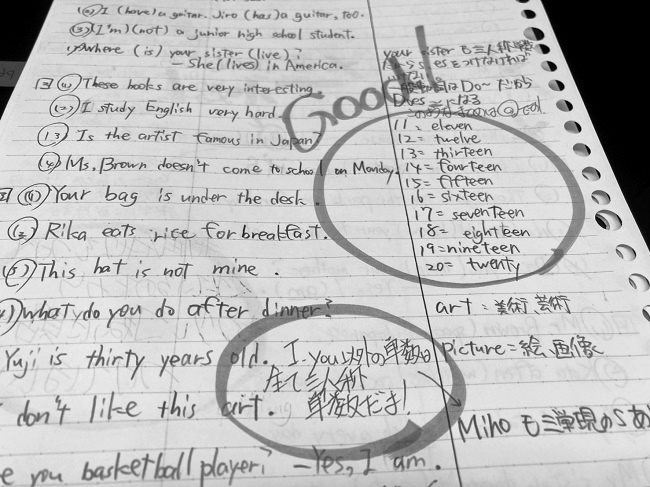 (2) I (have) a guitar. Jiro (has) a guitar, too.
(3) (I'm) (not) a junior high school student.
Where (is) your sister (live)?
— She (lives) in America.
(1) These books are very interesting.
(2) I study English very hard.
(3) Is the artist famous in Japan?
(4) Ms. Brown doesn't come to school on Monday.
(1) Your bag is under the desk.
(2) Rika eats rice for breakfast.
(3) This hat is not mine.
what do you do after dinner?
Yuji is thirty years old.
don't like this art.
e you basketball player? — Yes, I am.
Good!
your sister も三人称単数
だから s, es をつけなければ
はDo〜だから
Does
11 = eleven
12 = twelve
13 = thirteen
14 = fourteen
15 = fifteen
16 = sixteen
17 = seventeen
18 = eighteen
19 = nineteen
20 = twenty
art : 美術, 芸術
picture = 絵, 画像
I, you以外の単数は
全て三人称
単数だよ!
Miho も三単現のsあ